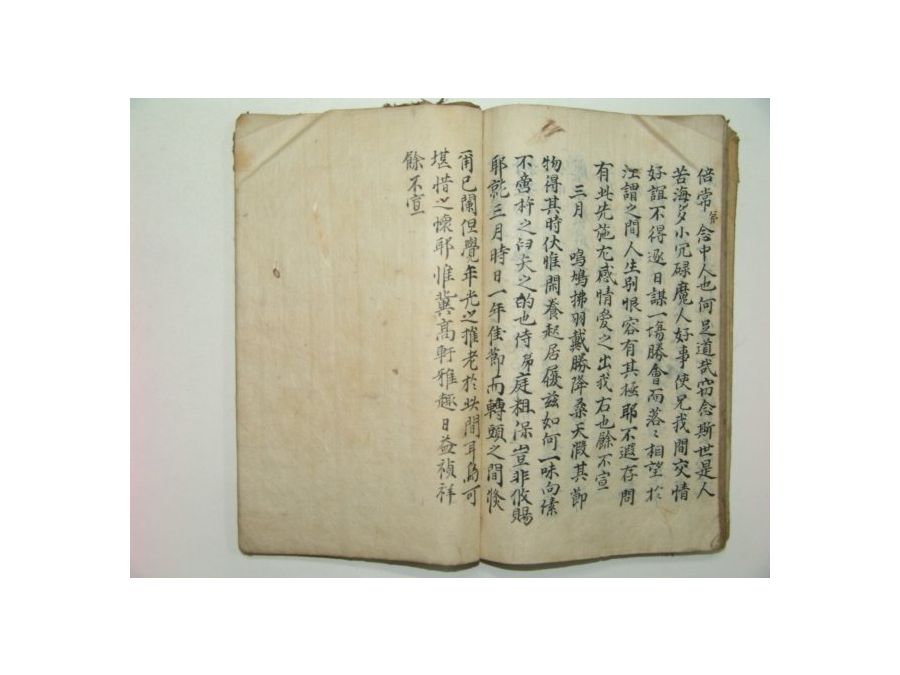 倍常 弟 念中人也何足道哉窃念斯世是人
苦海多小冗碌魔人好事使兄我間交情
好誼不得逐日謀一塲勝會而落〻相望於
江謂之間人生別恨容有其極耶不遐存問
有此先施尤感情愛之出我右也餘不宣
三月 鳴鳩拂羽戴勝降桑天假其節
物得其時伏惟閒養起居履玆如何一味向愫
不啻杵之臼矢之的也侍弟庭租保豈非攸賜
耶就三月時日一年佳節而轉頭之間倏
爾已闌但覺年光之催老於此間耳烏可
堪惜之懷耶惟冀高軒雅趣日益禎祥
餘不宣